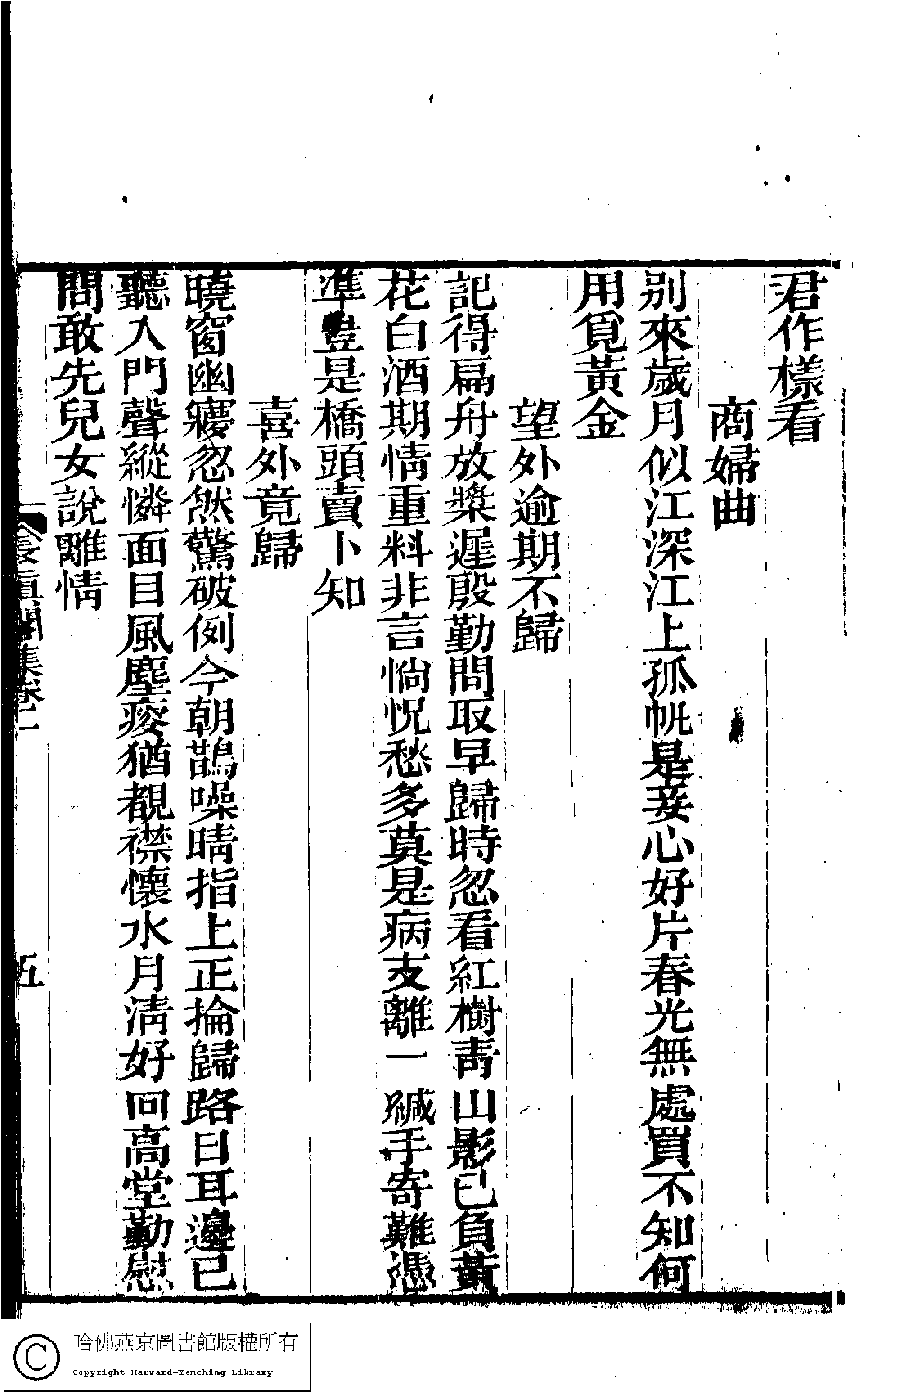 君作樣看
商婦曲
別來歲月似江深江上孤帆是妾心好片春光無處買不知何
用覓黃金
望外逾期不歸
記得扁舟放槳遲殷勤問取早歸時忽看紅樹靑山影已負黃
花白酒期情重料非言惝怳愁多莫是病支離一緘手寄難憑
準豈是橋頭賣卜知
喜外竟歸
曉窗幽寱忽然驚破例今朝鵲噪晴指上正掄歸路日耳邊已
聽入門聲縱憐面目風塵瘦猶覩襟懷水月淸好向高堂勤慰
問敢先兒女說離情
集卷一
五
哈佛燕京圖書館版權所有
Copyright Harvard-Yenching Library